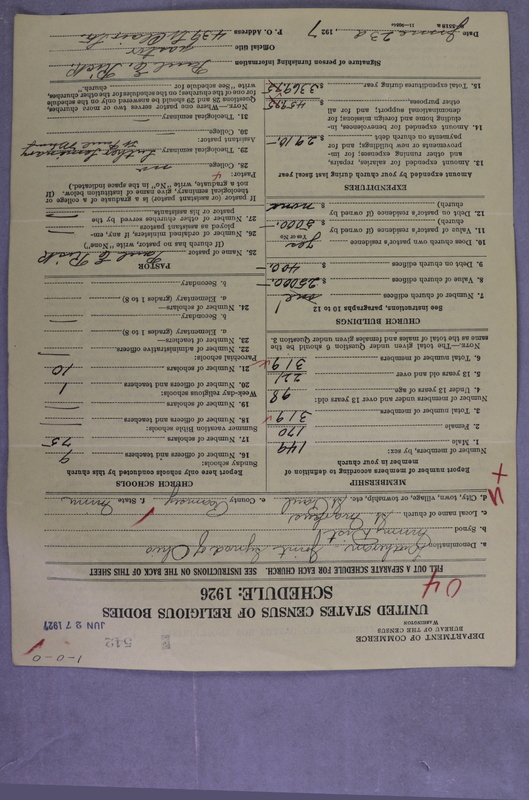 1-0-0
DEPARTMENT OF COMMERCE
BUREAU OF THE CENSUS
WASHINGTON
542
JUN 27 1927
UNITED STATES CENSUS OF RELIGIOUS BODIES
SCHEDULE: 1926
04
FILL OUT A SEPARATE SCHEDULE FOR EACH CHURCH. SEE INSTRUCTIONS ON THE BACK OF THIS SHEET
a. Denomination Lutheran Joint Synod of Ohio
b. Synod Minn. Dist.
c. Local name of church St. Markus
d. City, town, village, or township, etc. St. Paul e. County Ramsey f. State Minn
MEMBERSHIP
Report number of members according to definition of member in your church
Number of members, by sex:
1. Male 149
2. Female 170
3. Total number of members 319
Number of members under and over 13 years old:
4. Under 13 years of age 98
5. 13 years old and over 221
6. Total number of members 319
NOTE.—The total given under Question 6 should be the same as the total of males and females given under Question 3.
CHURCH BUILDINGS
See instructions, paragraphs 10 to 12
7. Number of church edifices one
8. Value of church edifices $ 25000.
9. Debt on church edifices $ 400.
10. Does church own pastor's residence yes
Yes or No
11. Value of pastor's residence (if owned by church) $ 5000.
12. Debt on pastor's residence (if owned by church) $ none
EXPENDITURES
Amount expended by your church during last year
13. Amount expended for salaries, repairs, and other running expenses; for improvements or new buildings; and for payments on church debt. $ 2910
14. Amount expended for benevolences, including home and foreign missions; for denominational support; and for all other purposes,
15. Total expenditures during year
CHURCH SCHOOLS
Report here only schools conducted by this church
Sunday schools:
16. Number of officers and teachers 9
17. Number of scholars 75
Summer vacation Bible schools:
18. Number of officers and teachers
19. Number of scholars
Week-day religious schools:
20. Number of officers and teachers 1
21. Number of scholars 10
Parochial schools:
22. Number of administrative officers
23. Number of teachers—
a. Elementary (grades 1 to 8)
b. Secondary
24. Number of scholars—
a. Elementary (grades 1 to 8)
b. Secondary
PASTOR
25. Name of pastor
(If church has no pastor, write "None")
26. Number of ordained ministers, if any, employed as assistant pastors
27. Number of other churches served by the pastor or his assistants
If pastor or assistant pastor is a graduate of a college or theological seminary, give name of institution below. (If not a graduate, write "No" in the space indicated.)
Pastor:
28. College no
29. Theological seminary Luther Seminary St Paul Minn
Assistant pastor:
30. College
31. Theological seminary
NOTE.—Where one pastor serves two or more churches, Questions 28 and 29 should be answered only on the schedule for one of the churches; on the schedule for the other churches, write "See schedule for church."
Signature of person furnishing information
Official title pastor
P. O. Address
Date June 23d, 1927